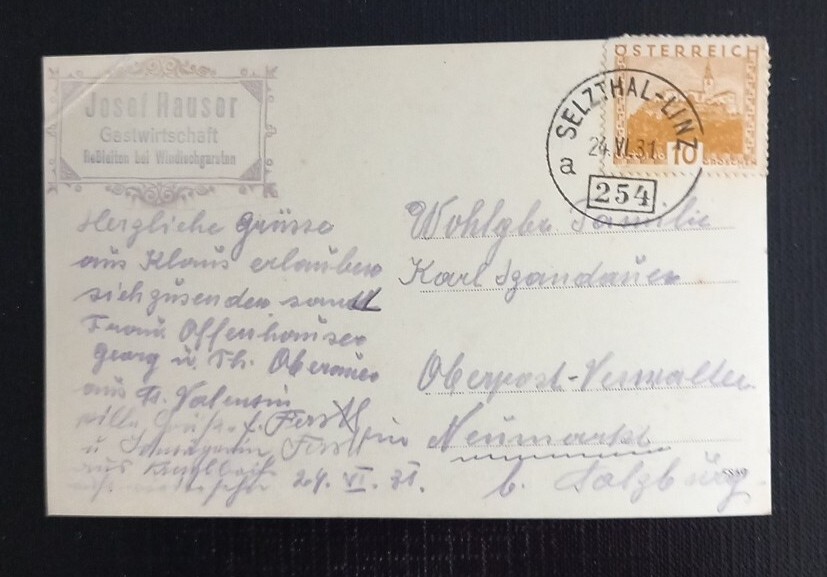 Josef Hauser
Gastwirtschaft
bei Windischgarsten
ÖSTERREICH
10 GROSCHEN
SELZTHAL-LINZ
24.VI.31
a
254
Herzliche Grüsse
aus Klaus erlauben
sich zusenden samt
Franz Offenhauser
Georg u. Th. Oberauer
aus St. Valentin
u Schwägerin
aus
24. VI. 31.
Wohlgbr Familie
Karl
Oberpost-Verwalter
in Neumarkt
b. Salzburg